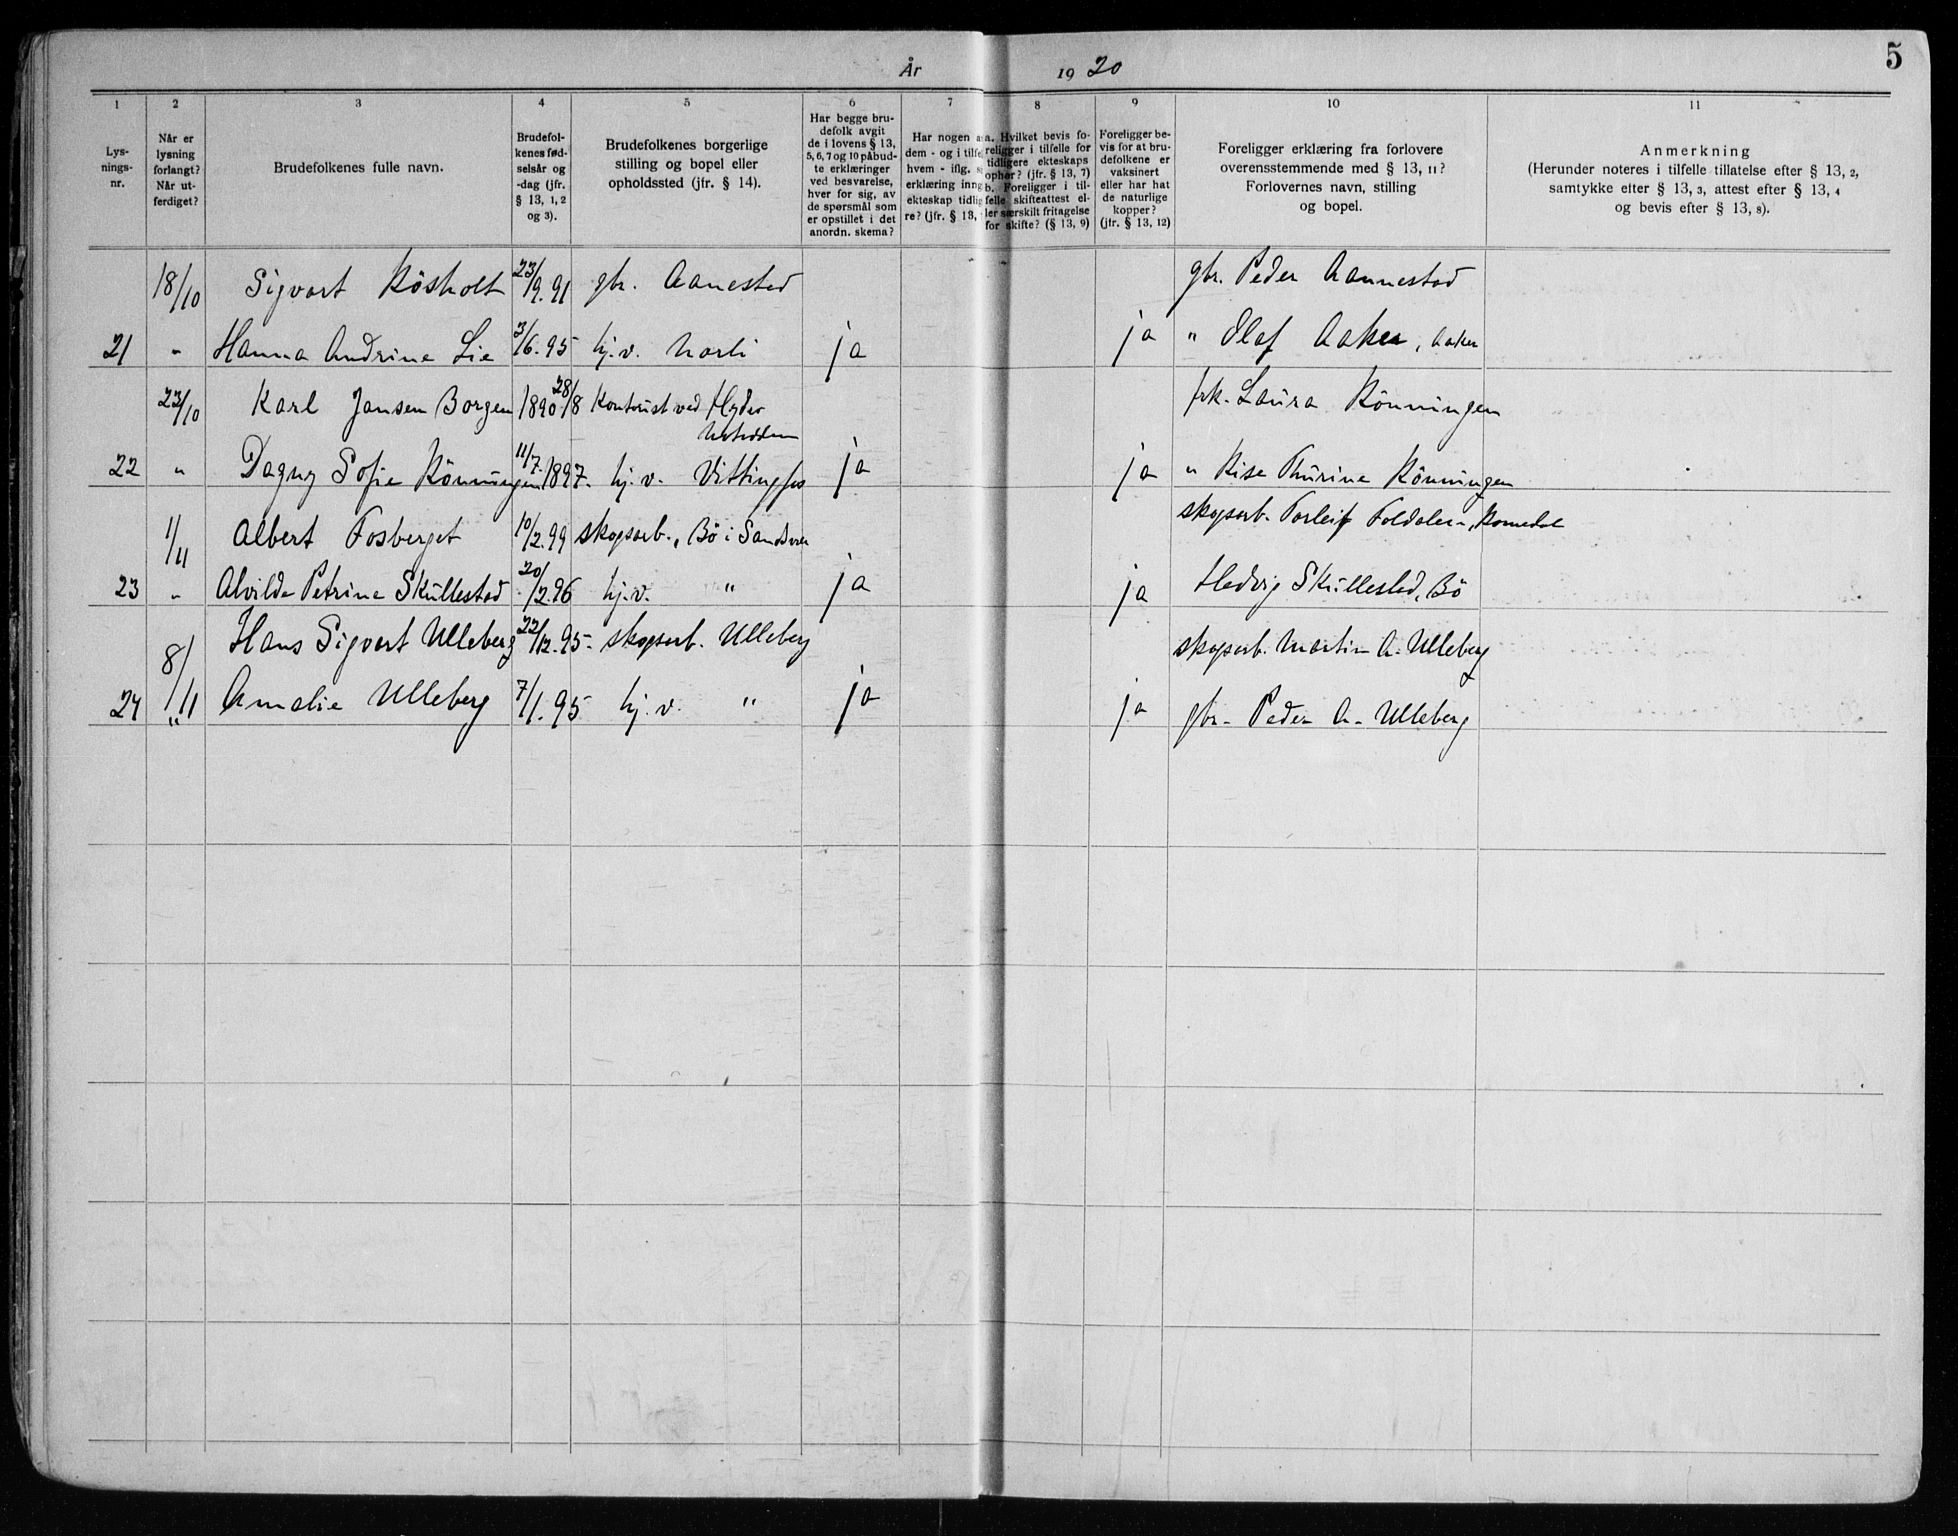 År 1920
5
1 2 3 4 5 6 7 8 9 10 11
Lys-
nings-
nr.
Når er
lysning
forlangt?
Når ut-
ferdiget?
Brudefolkenes fulle navn.
Brudefol-
kenes fød-
selsår og
-dag (jfr.
§ 13, 1, 2
og 3).
Brudefolkenes borgerlige
stilling og bopel eller
opholdssted (jfr. § 14).
Har begge bru-
defolk avgit
de i lovens § 13,
5, 6, 7 og 10 påbud-
te erklæringer
ved besvarelse,
hver for sig, av
de spørsmål som
er opstillet i det
anordn. skema?
Har nogen a
dem - og i tilfe
hvem - iflg. s
erklæring inng
ekteskap tidlig
re? (jfr. § 13,
a. Hvilket bevis fo-
religger i tilfelle for
tidligere ekteskaps
ophør? (jfr. § 13, 7)
b. Foreligger i til-
felle skifteattest el-
ler særskilt fritagelse
for skifte? (§ 13, 9)
Foreligger be-
vis for at bru-
defolkene er
vaksinert
eller har hat
de naturlige
kopper?
(jfr. § 13, 12)
Foreligger erklæring fra forlovere
overensstemmende med § 13, 11?
Forlovernes navn, stilling
og bopel.
Anmerkning
(Herunder noteres i tilfelle tillatelse efter § 13, 2,
samtykke efter § 13, 3, attest efter § 13, 4
og bevis efter § 13, 8).
18/10 Sigvart Røsholt 23/9.91 gbr. Aanestad gbr. Peder Aannestad
21 " Hanna Andrine Lie 3/6.95 hj.v. Narli ja ja " Olaf Aaker, Aaker
23/10 Karl Jansen Borgen 1890 28/8 Kontorist ved Hydro frk. Laura Rönningen
Notodden
22 " Dagny Sofie Rönningen 11/7.1897. hj.v. Vittingfos ja ja " Rise Thurine Rönningen
1/11 Albert Fosberget 10/2.99 skogsarb., Bö i Sandsvær skogsarb. Torleif Foldalen, Romedal
23 " Alvilde Petrine Skullestad 20/12.96 hj.v. " ja ja Hedvig Skullestad, Bö
8/11 Hans Sigvart Ulleberg 22/12.95. skogsarb. Ulleberg skogsarb. Martin A. Ulleberg
24 " Amalie Ulleberg 7/1.95 hj.v. " ja ja gbr. Peder A. Ulleberg